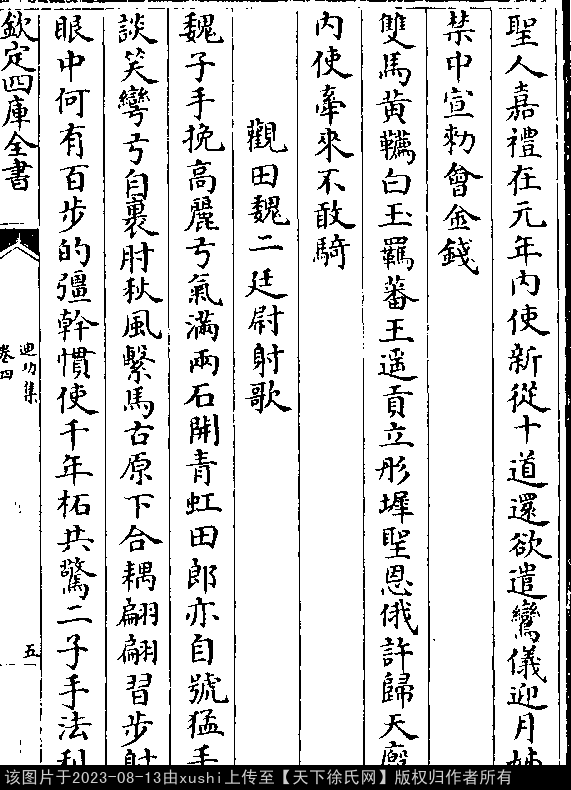 聖人嘉禮在元年内使新從十道還欲遣鸞儀迎月姊
禁中宣勑會金錢
雙馬黄韉白玉羈蕃王遥貢立彤墀聖恩俄許歸天廏
内使牽來不敢騎
觀田魏二廷尉射歌
魏子手挽高麗弓氣滿兩石開青虹田郎亦自號猛手
談笑彎弓自裹肘秋風繫馬古原下合耦翩翩習步射
眼中何有百步的彊幹慣使千年柘共驚二子手法利
欽定四庫全書
迪功集
卷四
五
该图片于2023-08-13由xushi上传至【天下徐氏网】版权归作者所有